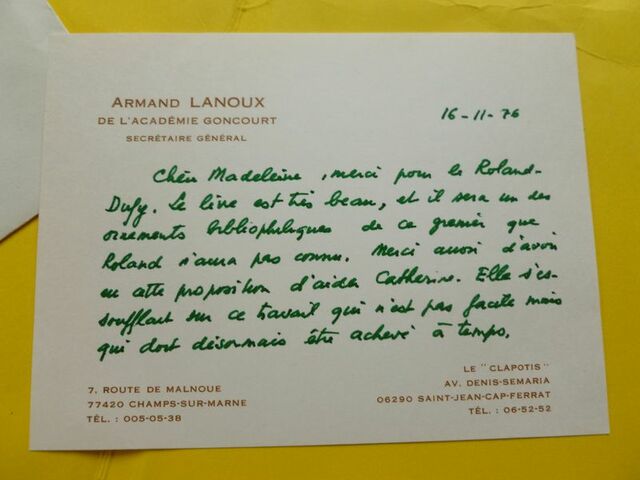 ARMAND LANOUX
DE L'ACADÉMIE GONCOURT
SECRÉTAIRE GÉNÉRAL
16-11-76
Chère Madeleine, merci pour le Roland-
Dufy. Le livre est très beau, et il sera un des
ornements bibliophiliques de ce grenier que
Roland n'aura pas connu. Merci aussi d'avoir
eu cette proposition d'aider Catherine. Elle s'es-
soufflait sur ce travail qui n'est pas facile mais
qui doit désormais être achevé à temps.
7. ROUTE DE MALNOUE
77420 CHAMPS-SUR-MARNE
TÉL. : 005-05-38
LE "CLAPOTIS"
AV. DENIS-SEMARIA
06290 SAINT-JEAN-CAP-FERRAT
TÉL. : 06-52-52